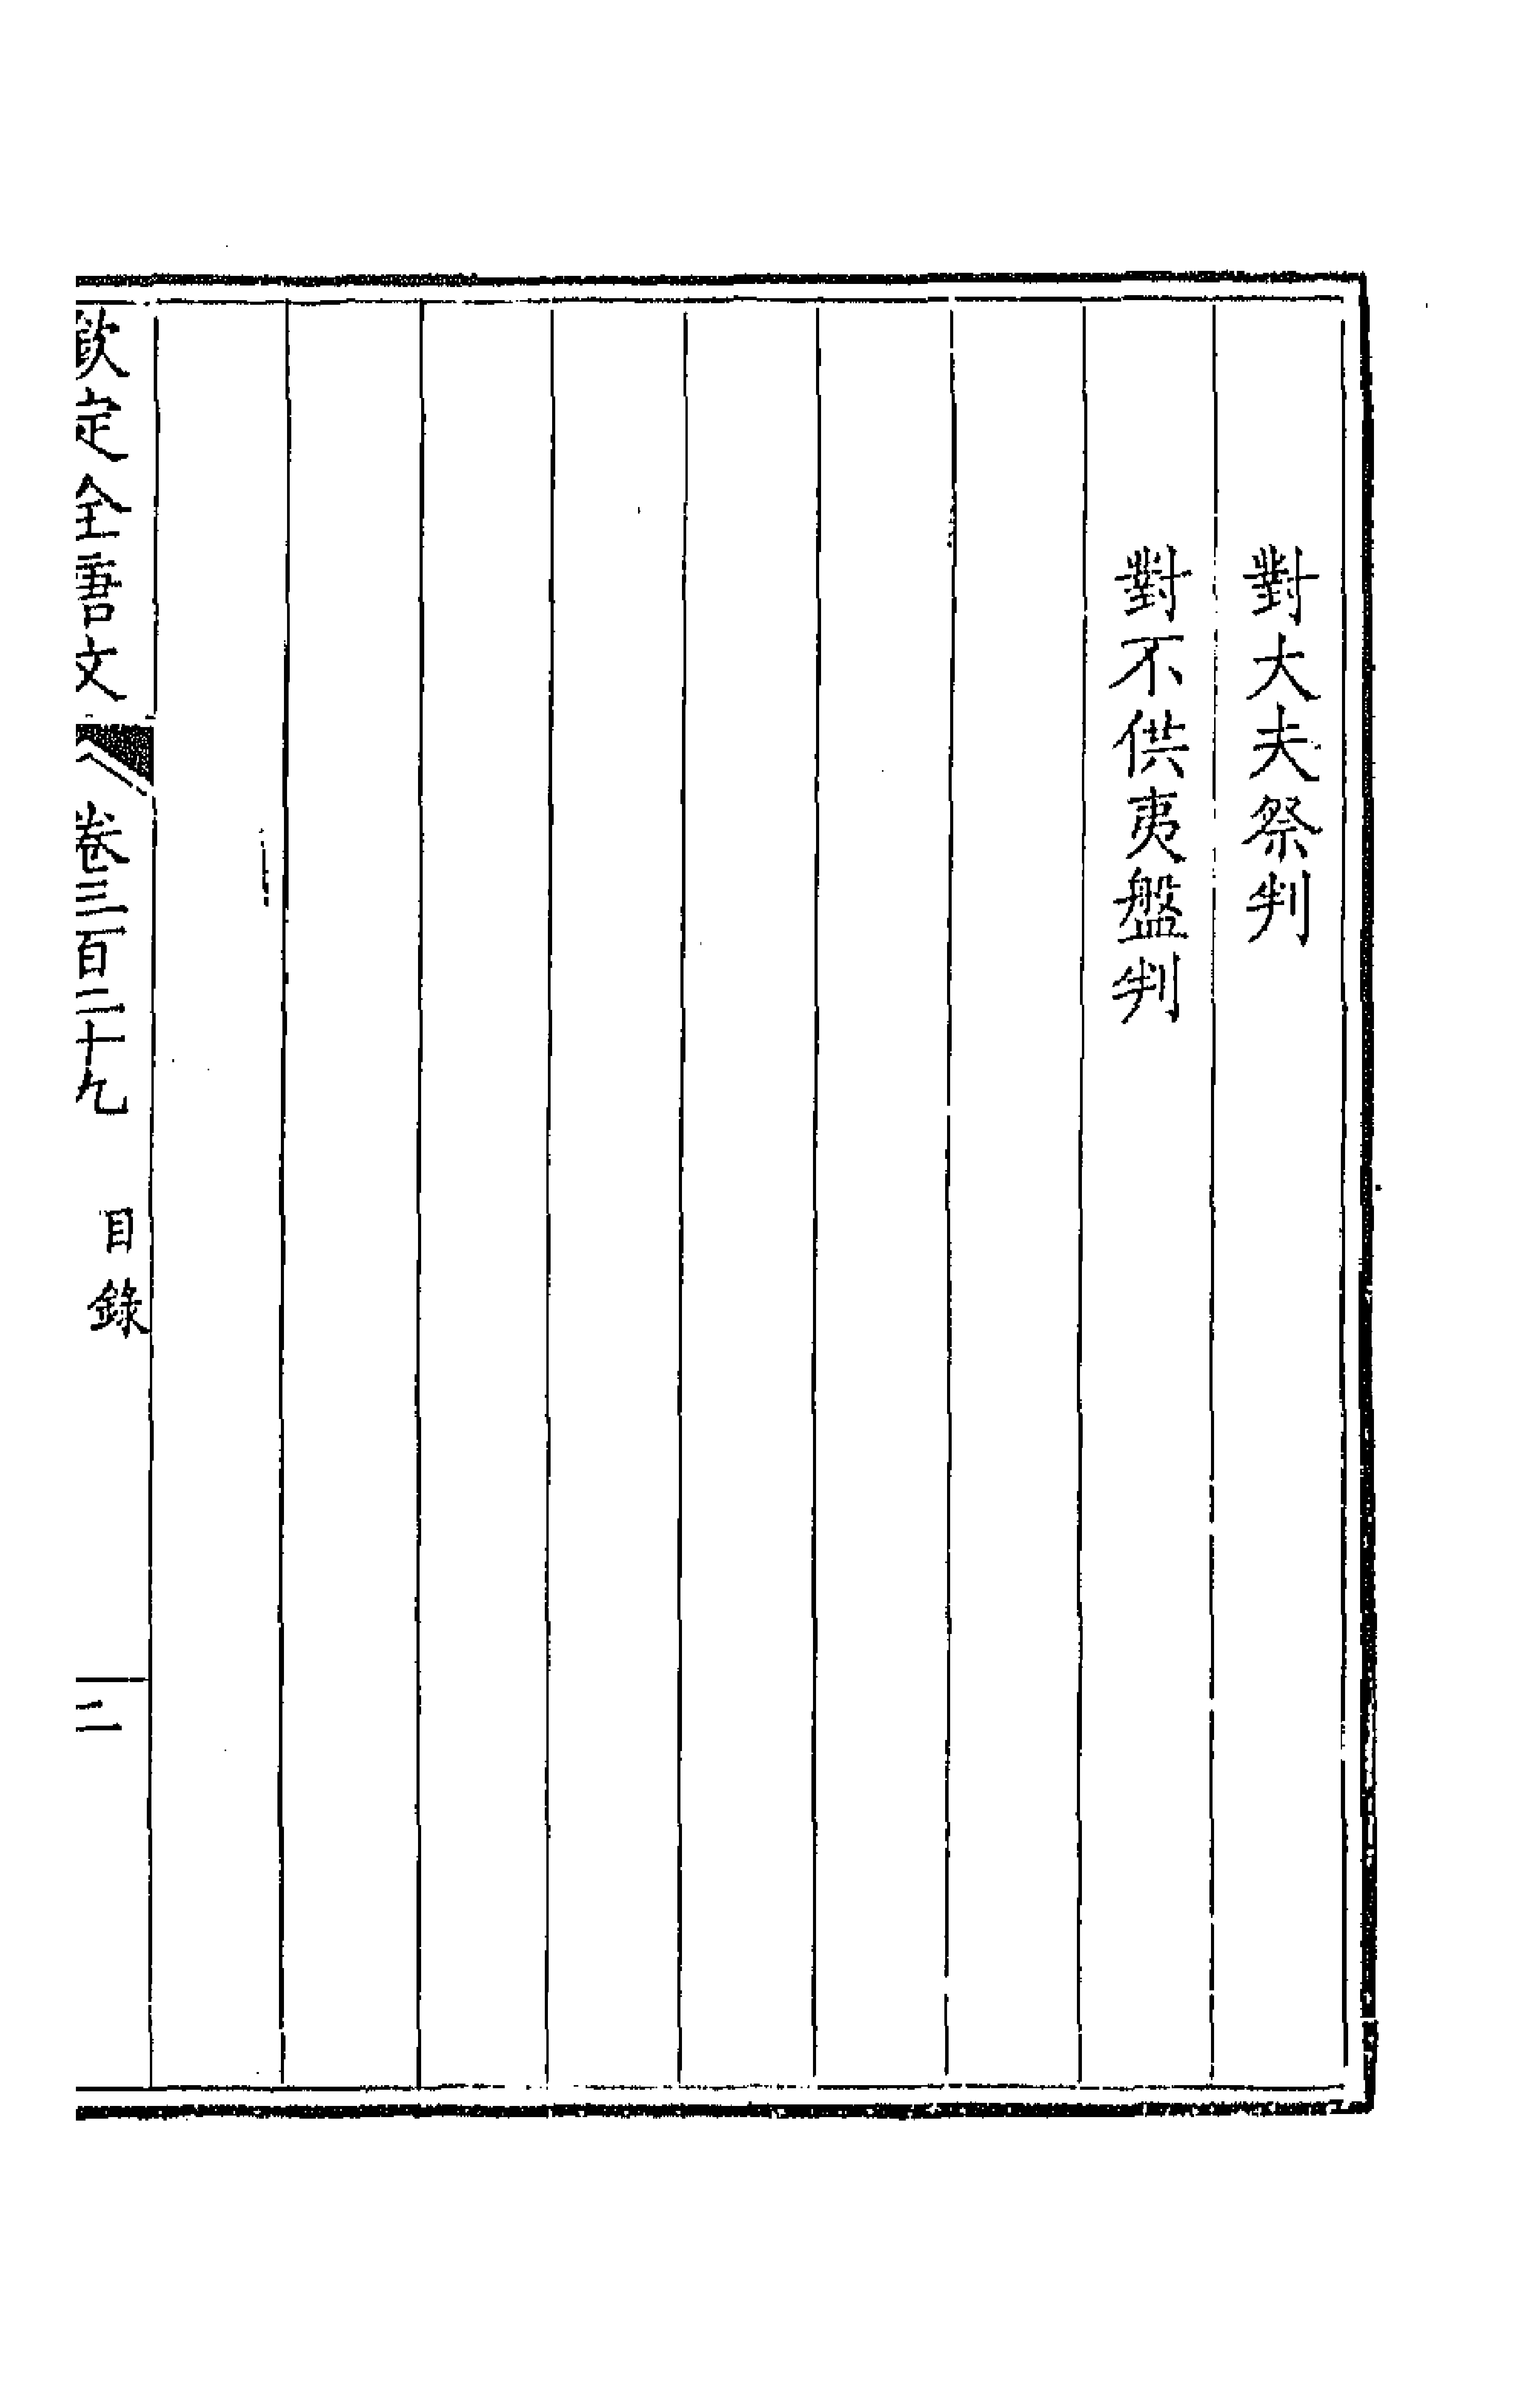 對大夫祭判
對不供夷盤判
欽定全唐文 卷三百二十九 目錄 二